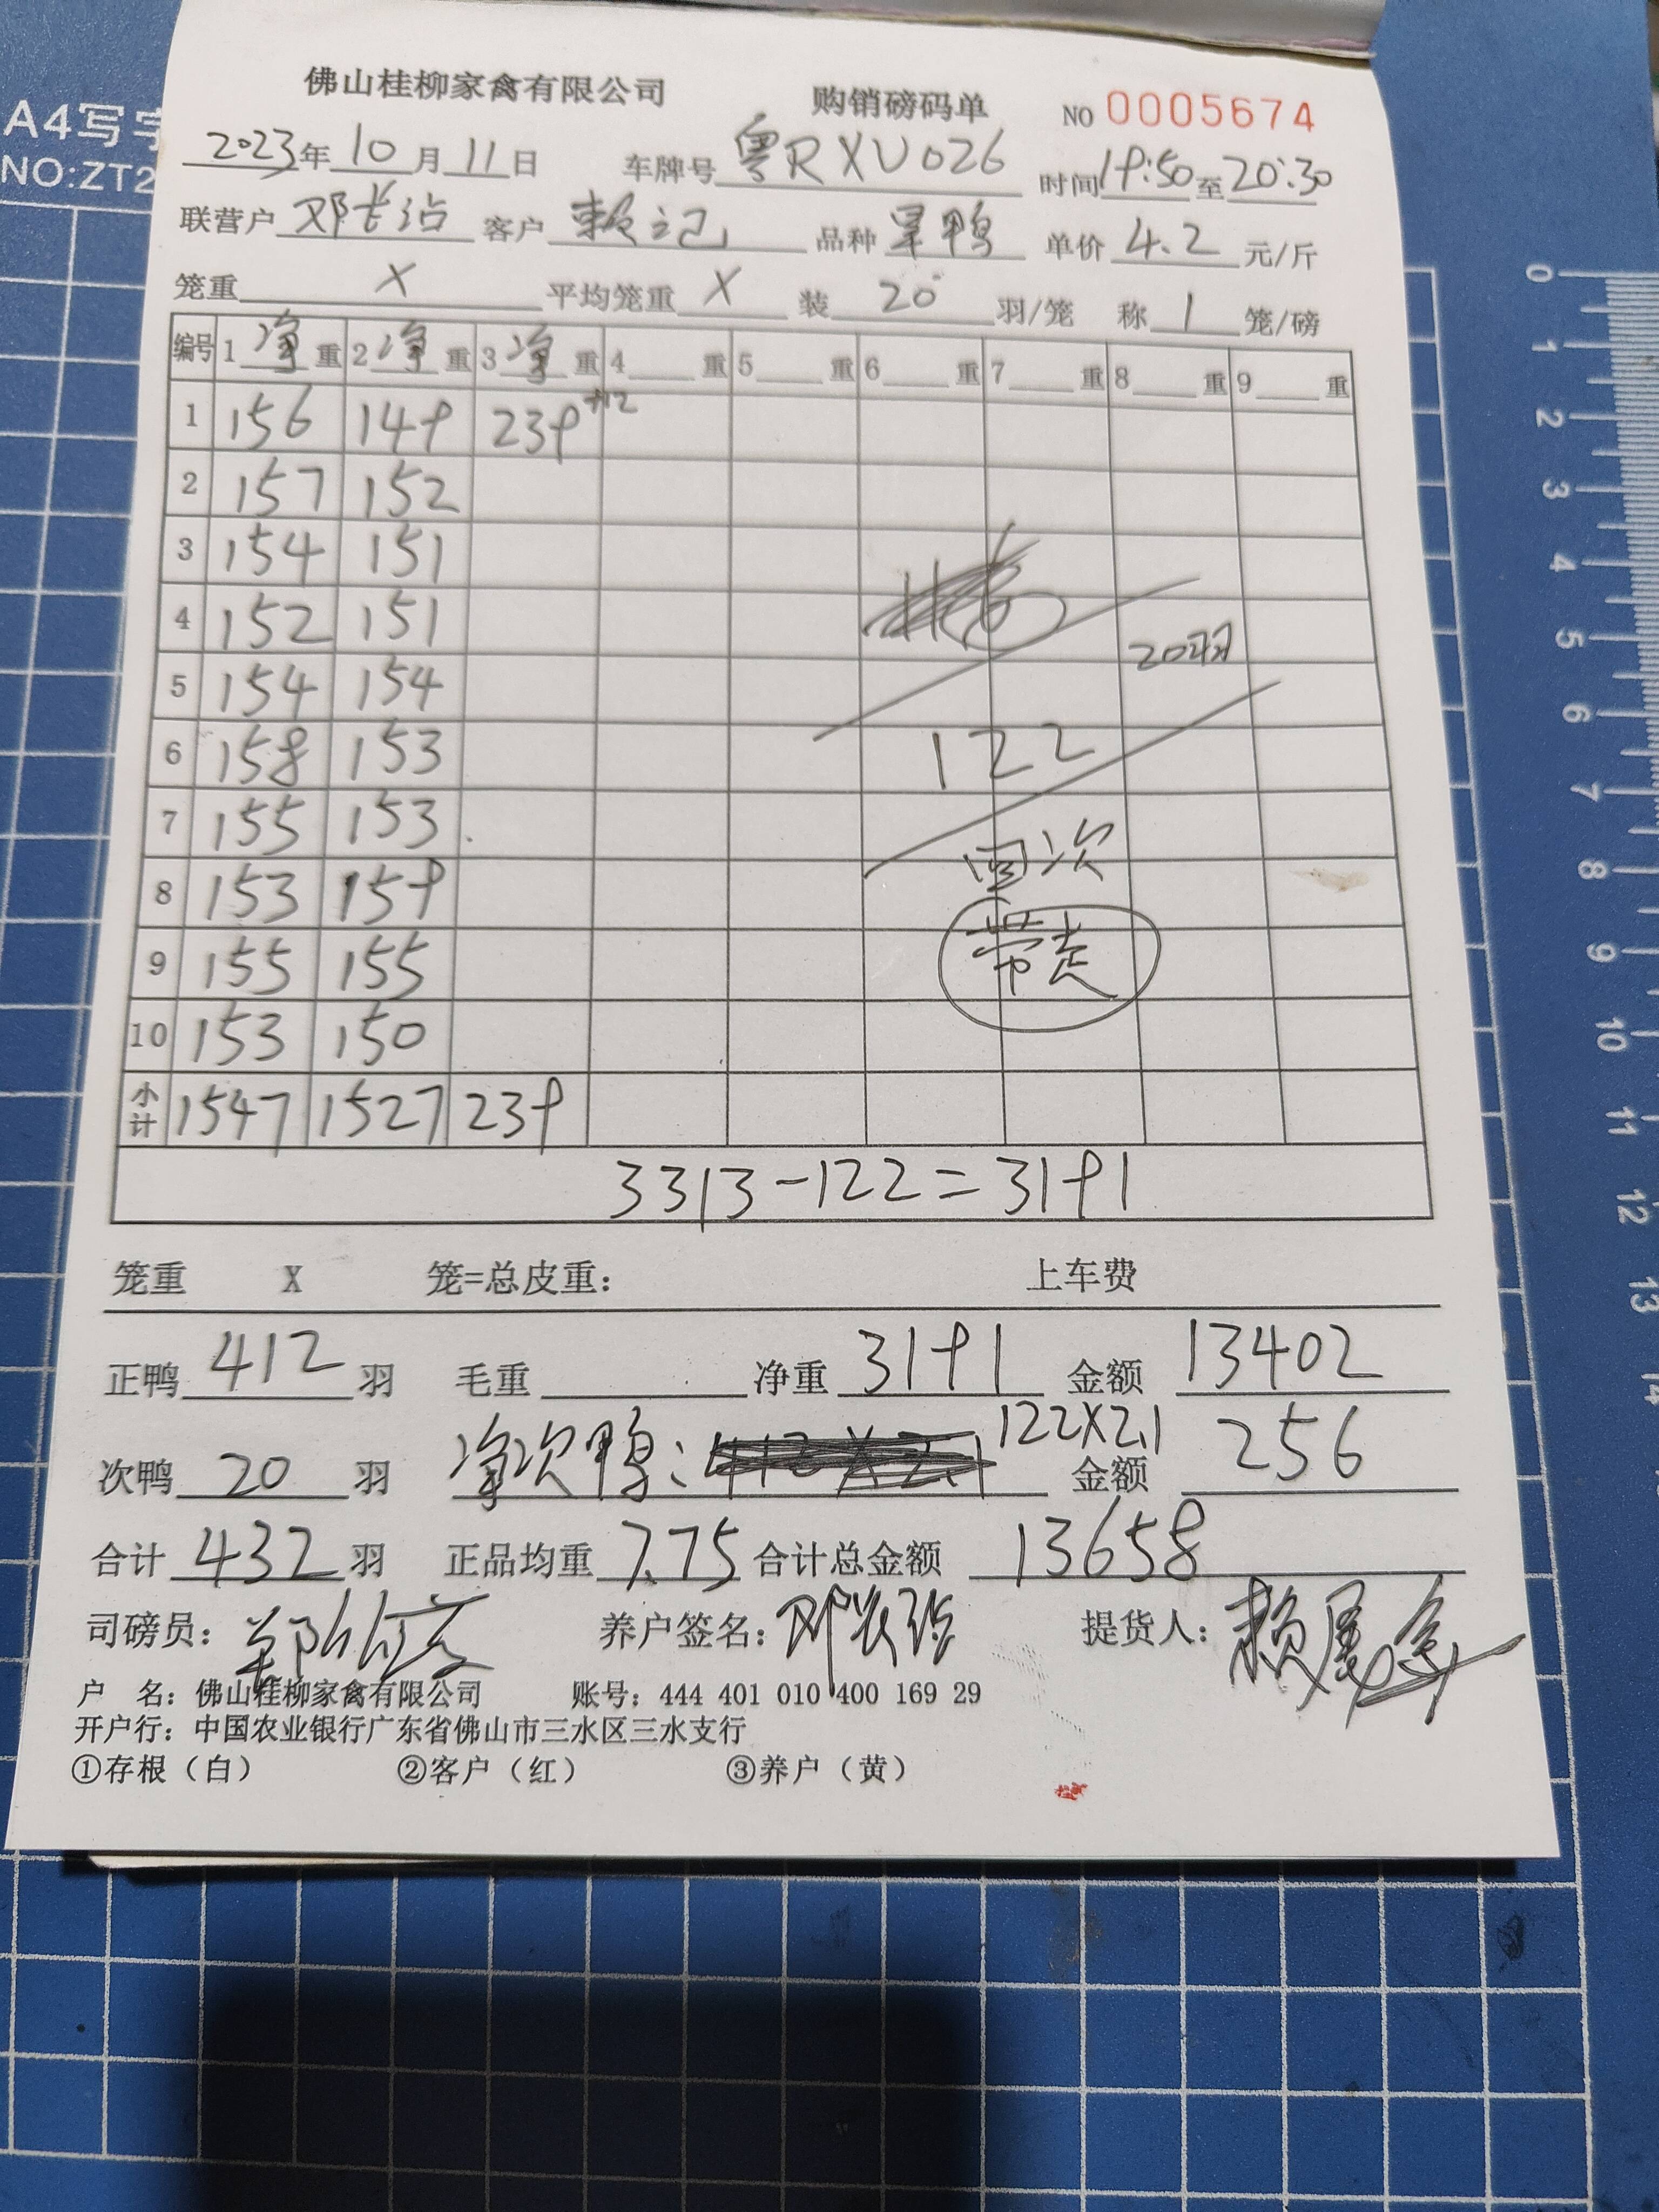 A4写字
NO:ZT2
佛山桂柳家禽有限公司 购销磅码单 NO 0005674
2023年10月11日 车牌号 粤RXU026 时间19:50至20:30
联营户 邓长沾 客户 赖记 品种 旱鸭 单价 4.2 元/斤
笼重 X 平均笼重 X 装 20 羽/笼 称 1 笼/磅
编号 1净重 2净重 3净重 4重 5重 6重 7重 8重 9重
1 156 149 239 +12
2 157 152
3 154 151
4 152 151 20羽
5 154 154
6 158 153 122
7 155 153
8 153 159 次
9 155 155 带走
10 153 150
小计 1547 1527 239
3313-122=3191
笼重 X 笼=总皮重: 上车费
正鸭 412 羽 毛重 净重 3191 金额 13402
次鸭 20 羽 净次鸭: 122X2.1 金额 256
合计 432 羽 正品均重 7.75 合计总金额 13658
司磅员: 养户签名: 提货人:
户 名: 佛山桂柳家禽有限公司 账号: 444 401 010 400 169 29
开户行: 中国农业银行广东省佛山市三水区三水支行
①存根（白） ②客户（红） ③养户（黄）
0
1
2
3
4
5
6
7
8
9
10
11
12
13
14